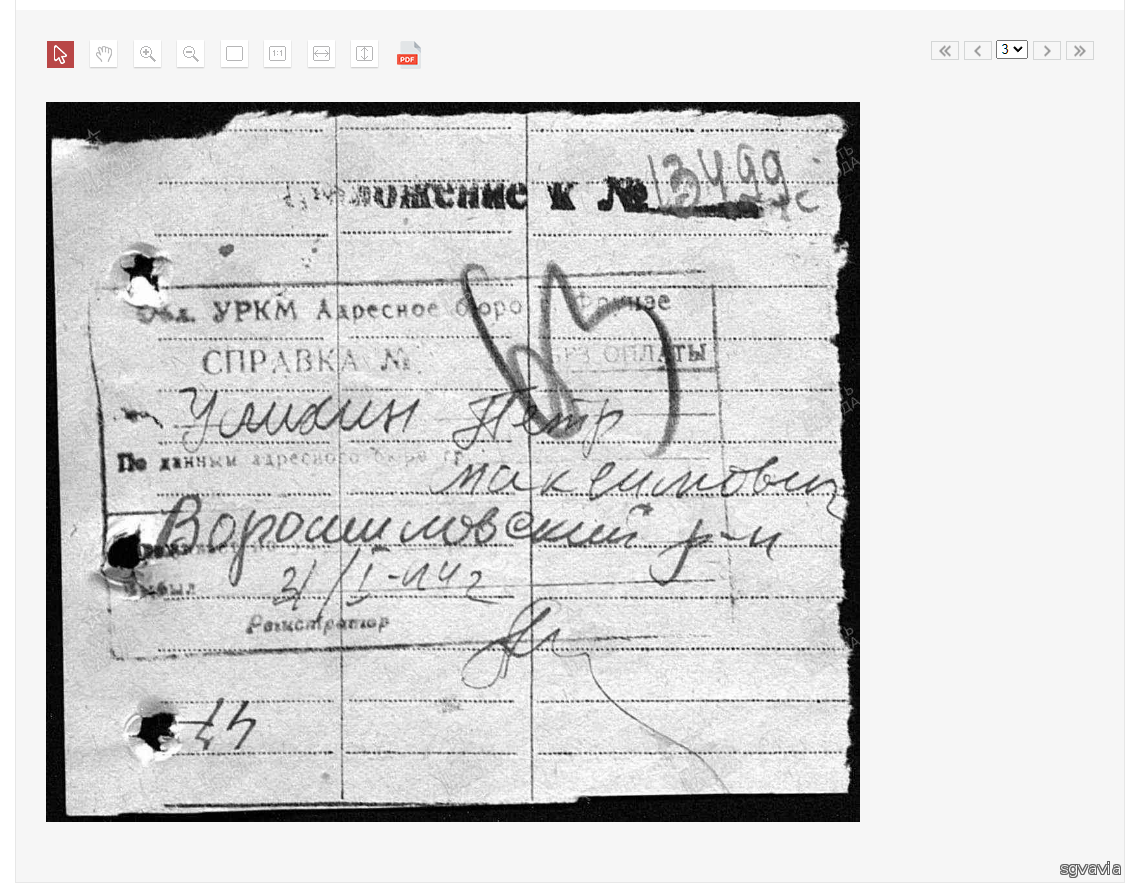 1:1
PDF
3
ложение к № 13499
с
Обл. УРКМ Адресное бюро г. Фрунзе
СПРАВКА №
БЕЗ ОПЛАТЫ
Улихин Петр
По данным адресного бюро гр.
Максимович
Ворошиловский р-н
Прож
выбыл
21/I-42 г
Регистратор
sgvavia